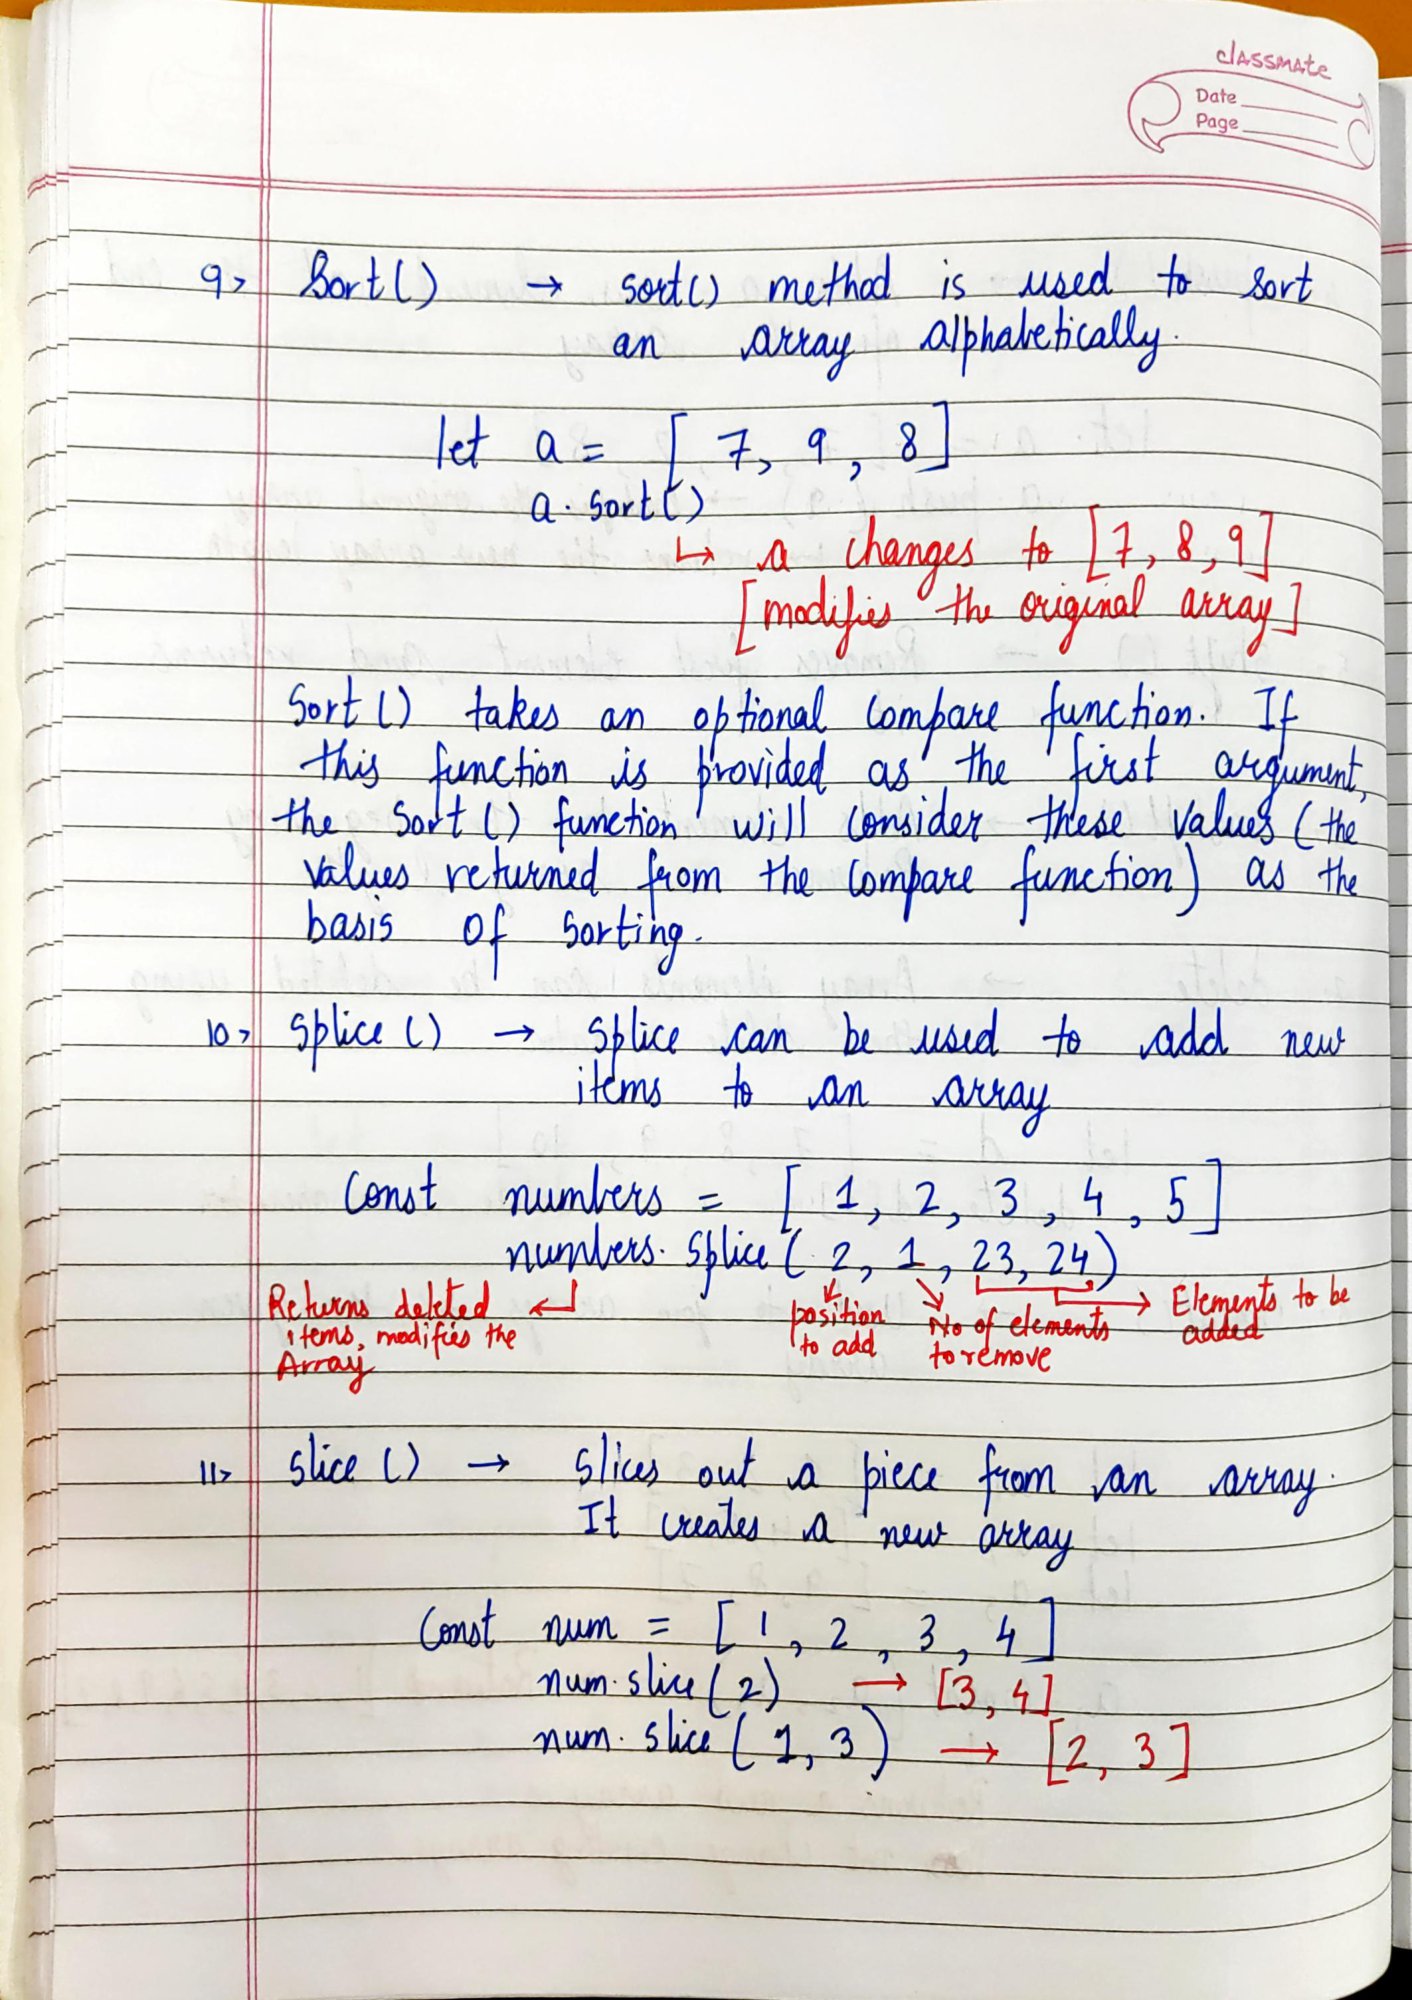 classmate
Date
Page
9> Sort() → sort() method is used to sort
an array alphabetically.
let a = [7, 9, 8]
a.sort()
↳ a changes to [7, 8, 9]
[modifies the original array]
Sort() takes an optional compare function. If
this function is provided as the first argument,
the sort() function will consider these values (the
values returned from the compare function) as the
basis of sorting.
10> splice() → splice can be used to add new
items to an array
Const numbers = [1, 2, 3, 4, 5]
numbers.splice(2, 1, 23, 24)
Returns deleted
items, modifies the
Array
position
to add
No of elements
to remove
Elements to be
added
11> slice() → slices out a piece from an array.
It creates a new array
Const num = [1, 2, 3, 4]
num.slice(2) → [3, 4]
num.slice(1, 3) → [2, 3]